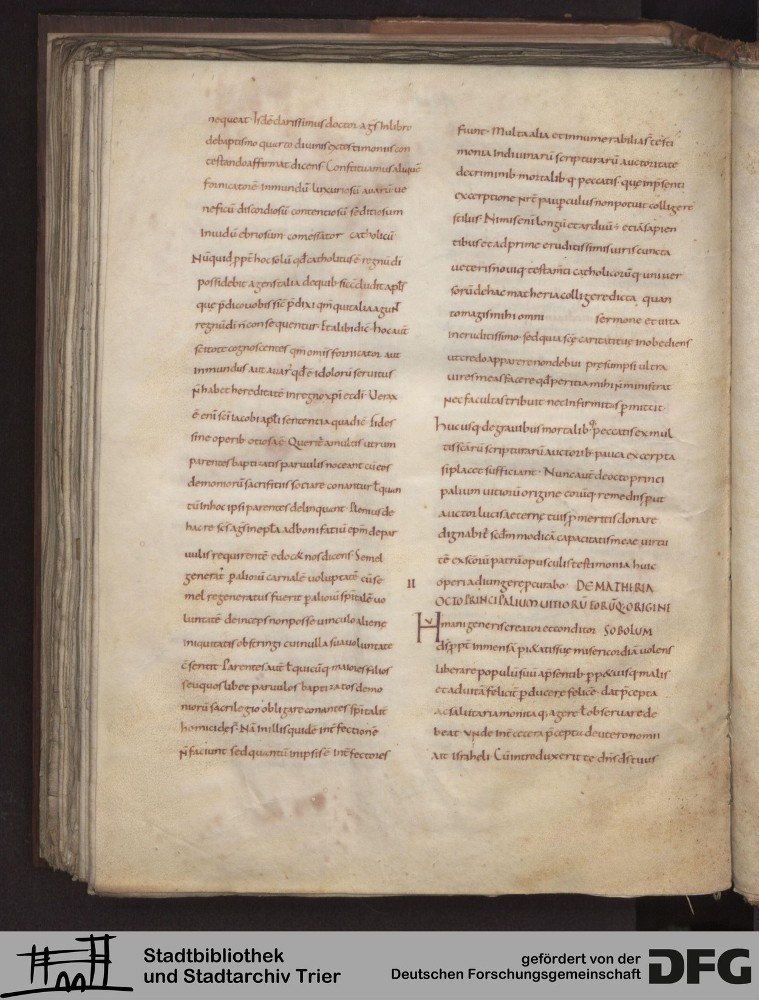 nequeat. Isdē clarissimus doctor ag̅s In libro
debaptismo quarto diuinis ex testimoniis con
testando affirmat dicens. Constituamus aliquē
fornicatorē Inmundū luxuriosū auarū ue
neficū discordiosū contentiosū seditiosum
Inuidū ebriosum comessator catholicū
Nūquid ppt̄ hoc solū qđ catholicus ē regnū di
possidebit agens talia dequib; sic c̄cludit apl̄s
que p̄dico uobis sic p̄dixi qm̄ qui talia agūt
regnū di n̄ consequentur. Et alibi dic̄ hoc aut̄
scitote cognoscentes qm̄ omis fornicator aut
inmundus aut auar' qđ ē idolorū seruitus
n̄ habet hereditatē in regno xp̄i et di. Uerax
ē enī sc̄i iacobi apl̄i sententia qua dic̄ fides
sine operib; otiosa ē. Querit̄ a multis utrum
parentes baptizatis paruulis noceant cū eos
demoniorū sacrificiis sociare conantur ł quan
tū in hoc ipsi parentes delinquant. Plenius de
hac re sc̄s ag̅s in epl̄a ad bonifatiū ep̄m de par
uulis requirentē edocet nos dicens. Semel
generat' p aliorū carnalē voluptatē cū se
mel regeneratus fuerit p aliorū sp̄italē uo
luntatē deinceps non posse uinculo alienę
iniquitatis obstringi cui nulla sua uoluntate
c̄sentit. Parentes aut̄ ł quicūq; maiores filios
seu quoslibet paruulos baptizatos demo
niorū sacrilegio obligare conantes sp̄italit̄
homicidę s̄. Nā in illis quidē int̄fectionē
n̄ faciunt sed quantū in ipsis ē int̄fectores
fiunt. Multa alia et innumerabilia s̄ testi
monia In diuinarū scripturarū auctoritate
de criminib; mortalib; q; peccatis. que in p̄senti
excerptione nr̄ę paupculus non potuit colligere
stilus. Nimis enī longū et arduū ÷ etiā sapien
tibus et ad prime eruditissimis uiris cuncta
ueteris nouiq; testam̄ti catholicorūq; uniuer
sorū de hac matheria colligere dicta quan
to magis mihi omni sermone et uita
ineruditissimo. sed quia sc̄ę caritati tuę inobediens
ut credo apparere non debui presumpsi ultra
uires meas facere qđ peritia mihi n̄ ministrat
nec facultas tribuit nec infirmitas pmittit.
Hucusq; de grauibus mortalib; q; peccatis ex mul
tis sc̄arū scripturarū auctorib; pauca excerpta
si placet sufficiant. Nunc aut̄ de octo princi
palium uitiorū origine eorūq; remediis put
auctor lucis aeternę tuis p meritis donare
dignabit̄ scdm modicā capacitatis meae uirtu
tē ex sc̄orū patrū opusculis testimonia huic
operi adiungere procurabo. DE MATHERIA
II
OCTO PRINCIPALIUM UITIORŪ EORŪQ; ORIGINE
Humani generis creator et conditor SOBOLUM
dis ppt̄ inmensā pietatisuę misericordiā uolens
liberare populū suū a p̄sentib; ppetuisq; malis
et ad uitā felicit̄ pducere felicē. dat p̄cepta
ac salutaria monita q; agere ł obseruare de
beat. Unde int̄ cetera p̄cepta deuteronomii
Ait israheli. Cū introduxerit te dn̄s ds tuus
Stadtbibliothek
und Stadtarchiv Trier
gefördert von der
Deutschen Forschungsgemeinschaft
DFG